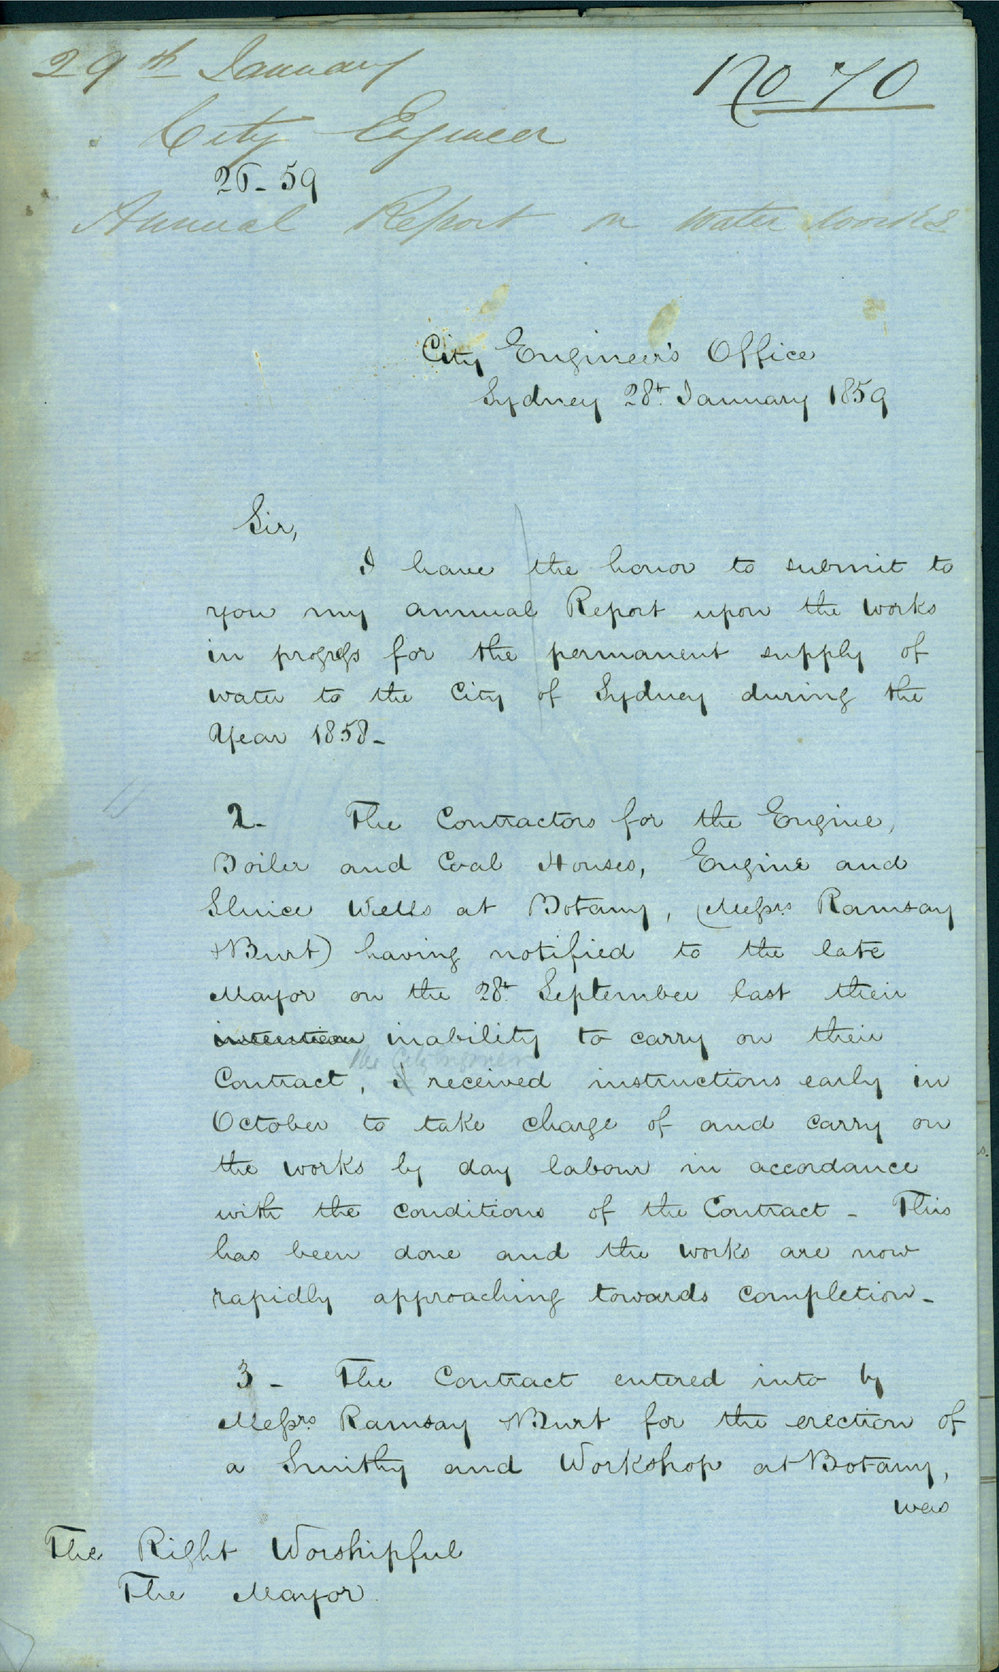 29th January
No 70
City Engineer
26-59
Annual Report on Water Works
City Engineer's Office
Sydney 28th January 1859
Sir,
I have the honor to submit to
you my annual Report upon the works
in progress for the permanent supply of
water to the City of Sydney during the
Year 1858-
2- The Contractors for the Engine,
Boiler and Coal Houses, Engine and
Sluice Wells at Botany, (Messrs Ramsay
+ Burt) having notified to the late
Mayor on the 28th September last their
intention inability to carry on their
the City Engineer
Contract, I received instructions early in
October to take charge of and carry on
the works by day labour in accordance
with the conditions of the Contract - This
has been done and the works are now
rapidly approaching towards completion-
3- The Contract entered into by
Messrs Ramsay + Burt for the erection of
a Smithy and Workshop at Botany,
was
The Right Worshipful
The Mayor